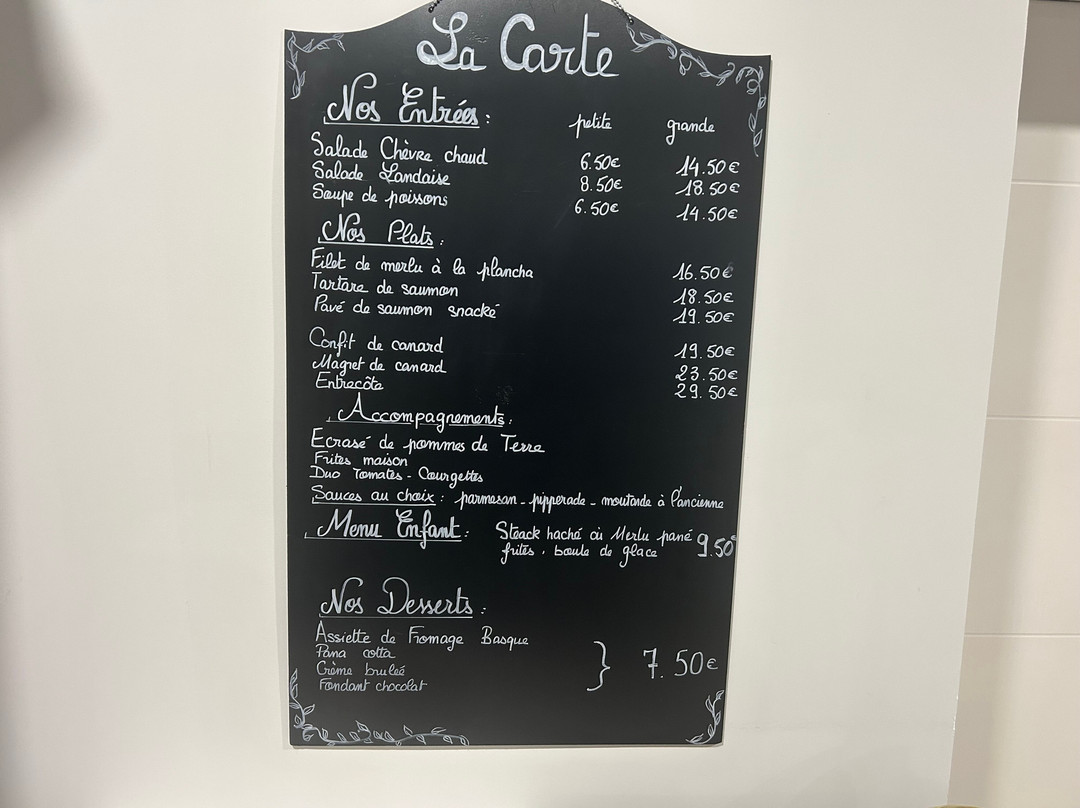 La Carte
Nos Entrées : petite grande
Salade Chèvre chaud 6.50€ 14.50€
Salade Landaise 8.50€ 18.50€
Soupe de poissons 6.50€ 14.50€
Nos Plats :
Filet de merlu à la plancha 16.50€
Tartare de saumon 18.50€
Pavé de saumon snacké 19.50€
Confit de canard 19.50€
Magret de canard 23.50€
Entrecôte 29.50€
Accompagnements :
Ecrasé de pommes de Terre
Frites maison
Duo Tomates - Courgettes
Sauces au choix : parmesan - pipperade - moutarde à l'ancienne
Menu Enfant : Steack haché où Merlu pané 9.50€
frites, boule de glace
Nos Desserts :
Assiette de Fromage Basque
Pana cotta
Crème bruleé } 7.50€
Fondant chocolat